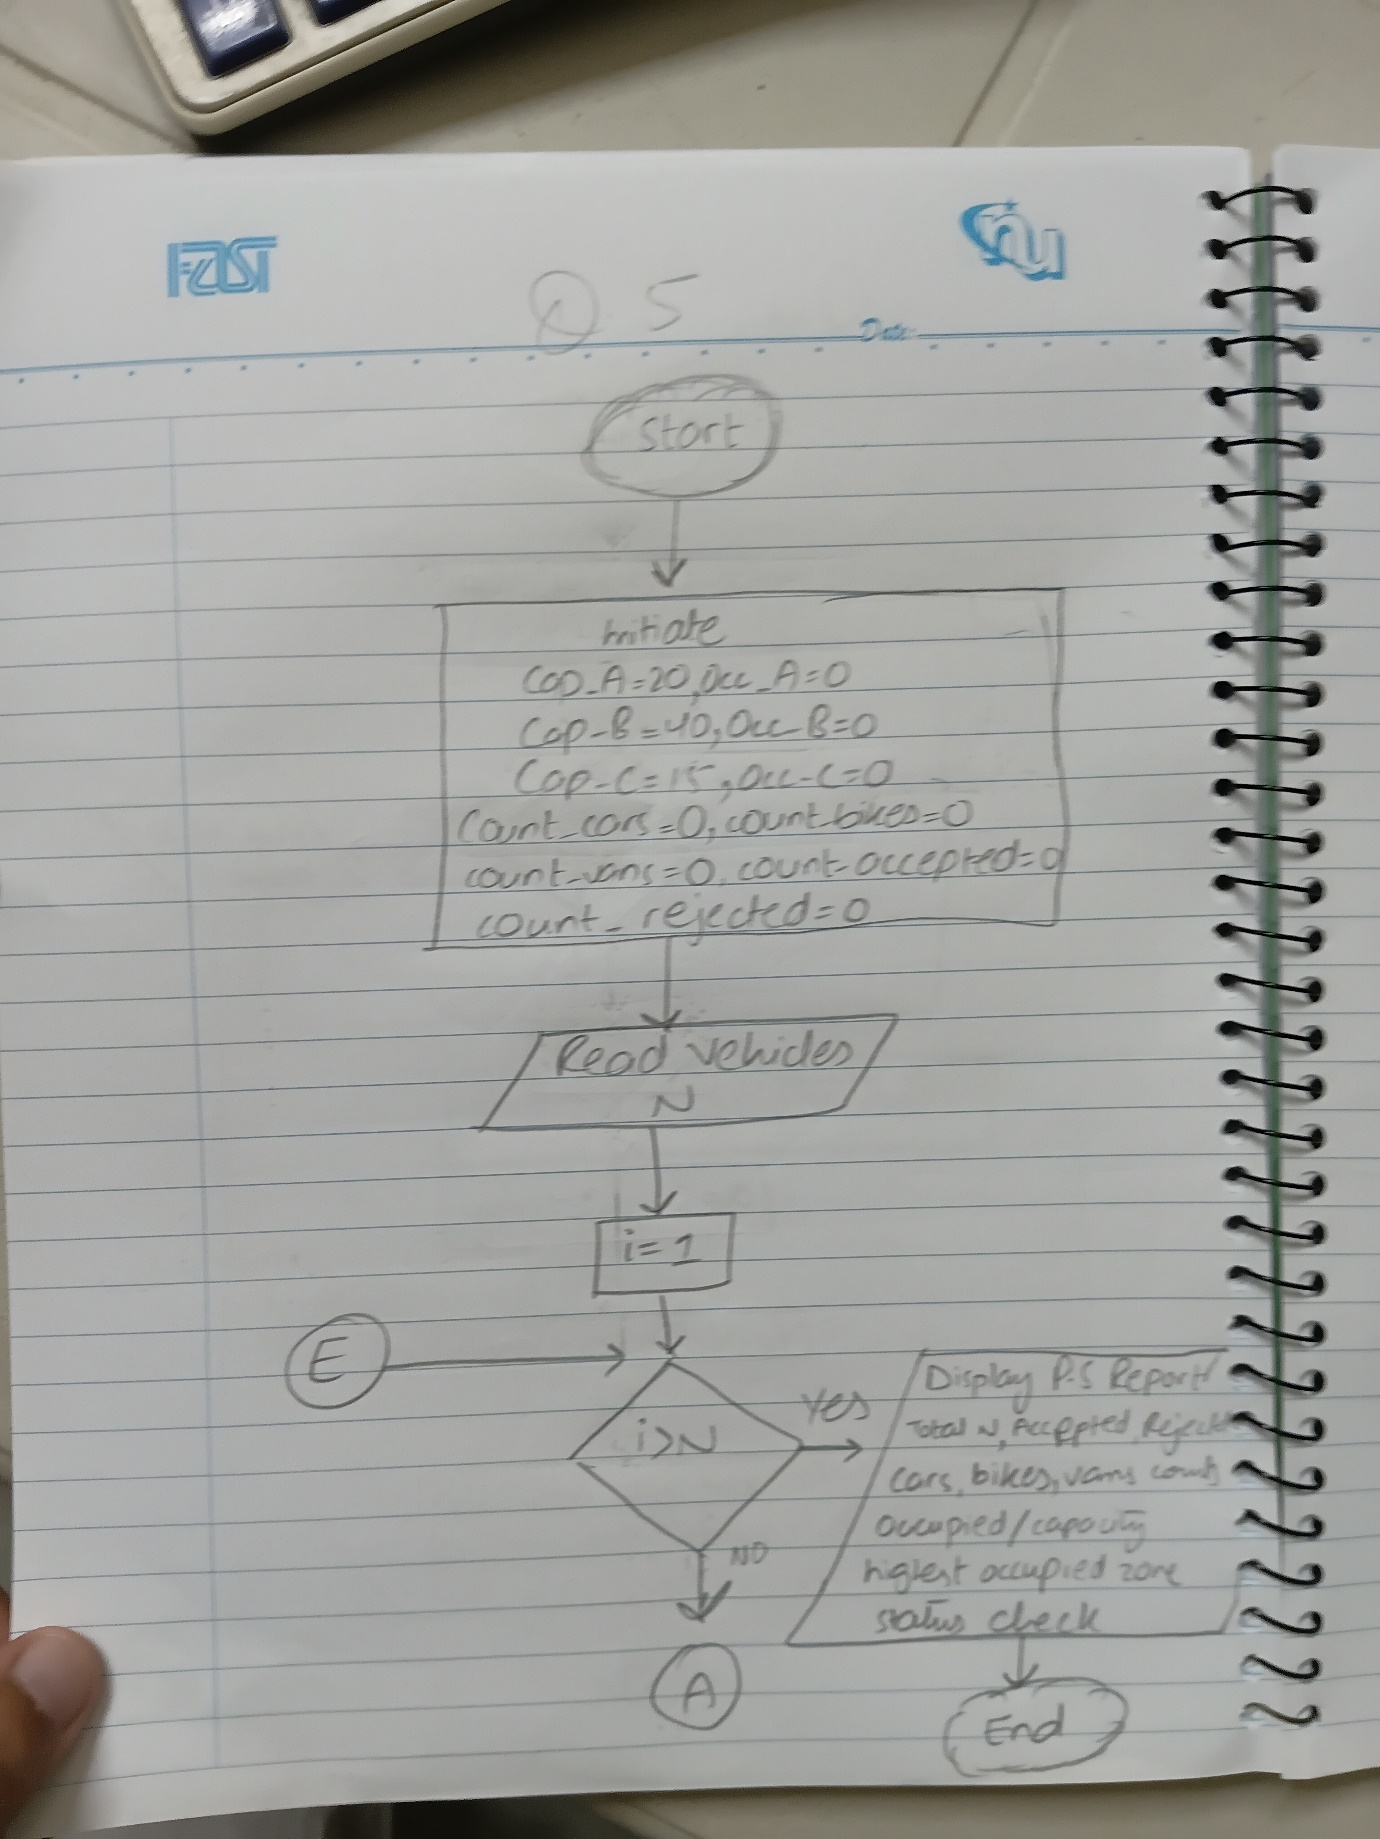 FAST
nu
Q 5
Date:
Start
Initiate
Cap_A=20, Occ_A=0
Cap-B=40, Occ-B=0
Cap-C=15, Occ-C=0
Count_cars=0, count bikes=0
count-vans=0, count-accepted=0
count_rejected=0
Read vehicles
N
i=1
E
i>N
Yes
NO
A
Display P.S Report
Total N, Accepted, Reject
cars, bikes, vans count
occupied/capacity
highest occupied zone
status check
End